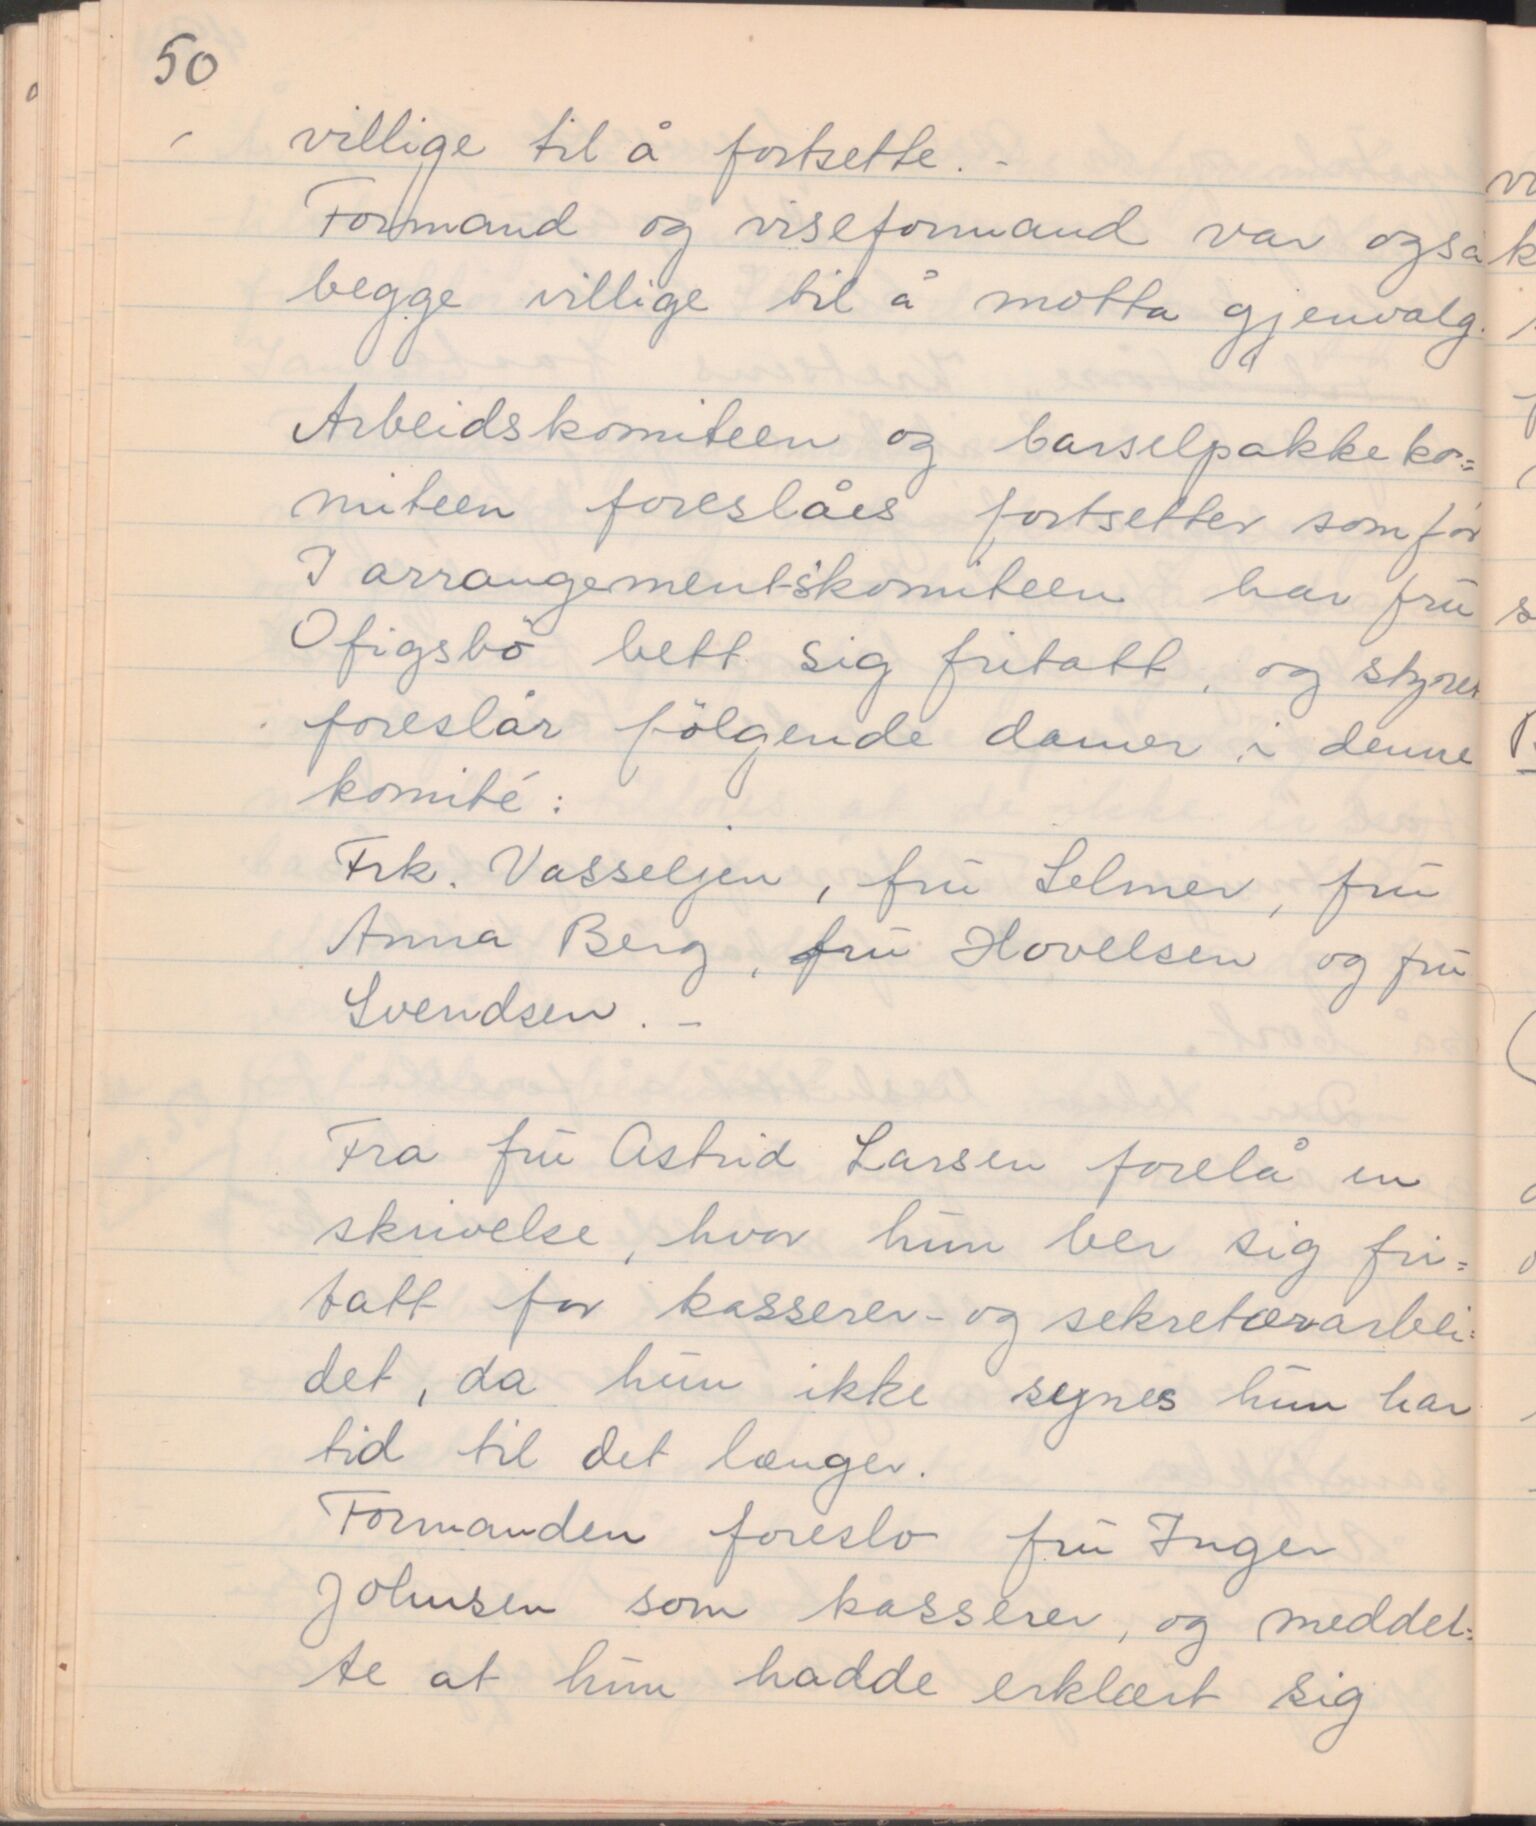 50
villige til å fortsette. -
Formand og viseformand var også
begge villige til å motta gjenvalg.
Arbeidskomiteen og barselpakkeko=
miteen foreslåes fortsetter som før
I arrangementskomiteen har fru
Ofigsbö bett sig fritatt, og styret
foreslår följende damer i denne
komité:
Frk. Vasseljen, fru Selmer, fru
Anna Berg, fru Hovelsen og fru
Svendsen. -
Fra fru Astrid Larsen forelå en
skrivelse, hvor hun ber sig fri=
tatt for kasserer- og sekretærarbei=
det, da hun ikke synes hun har
tid til det længer.
Formanden foreslo fru Inger
Johnsen som kasserer, og meddel=
te at hun hadde erklært sig